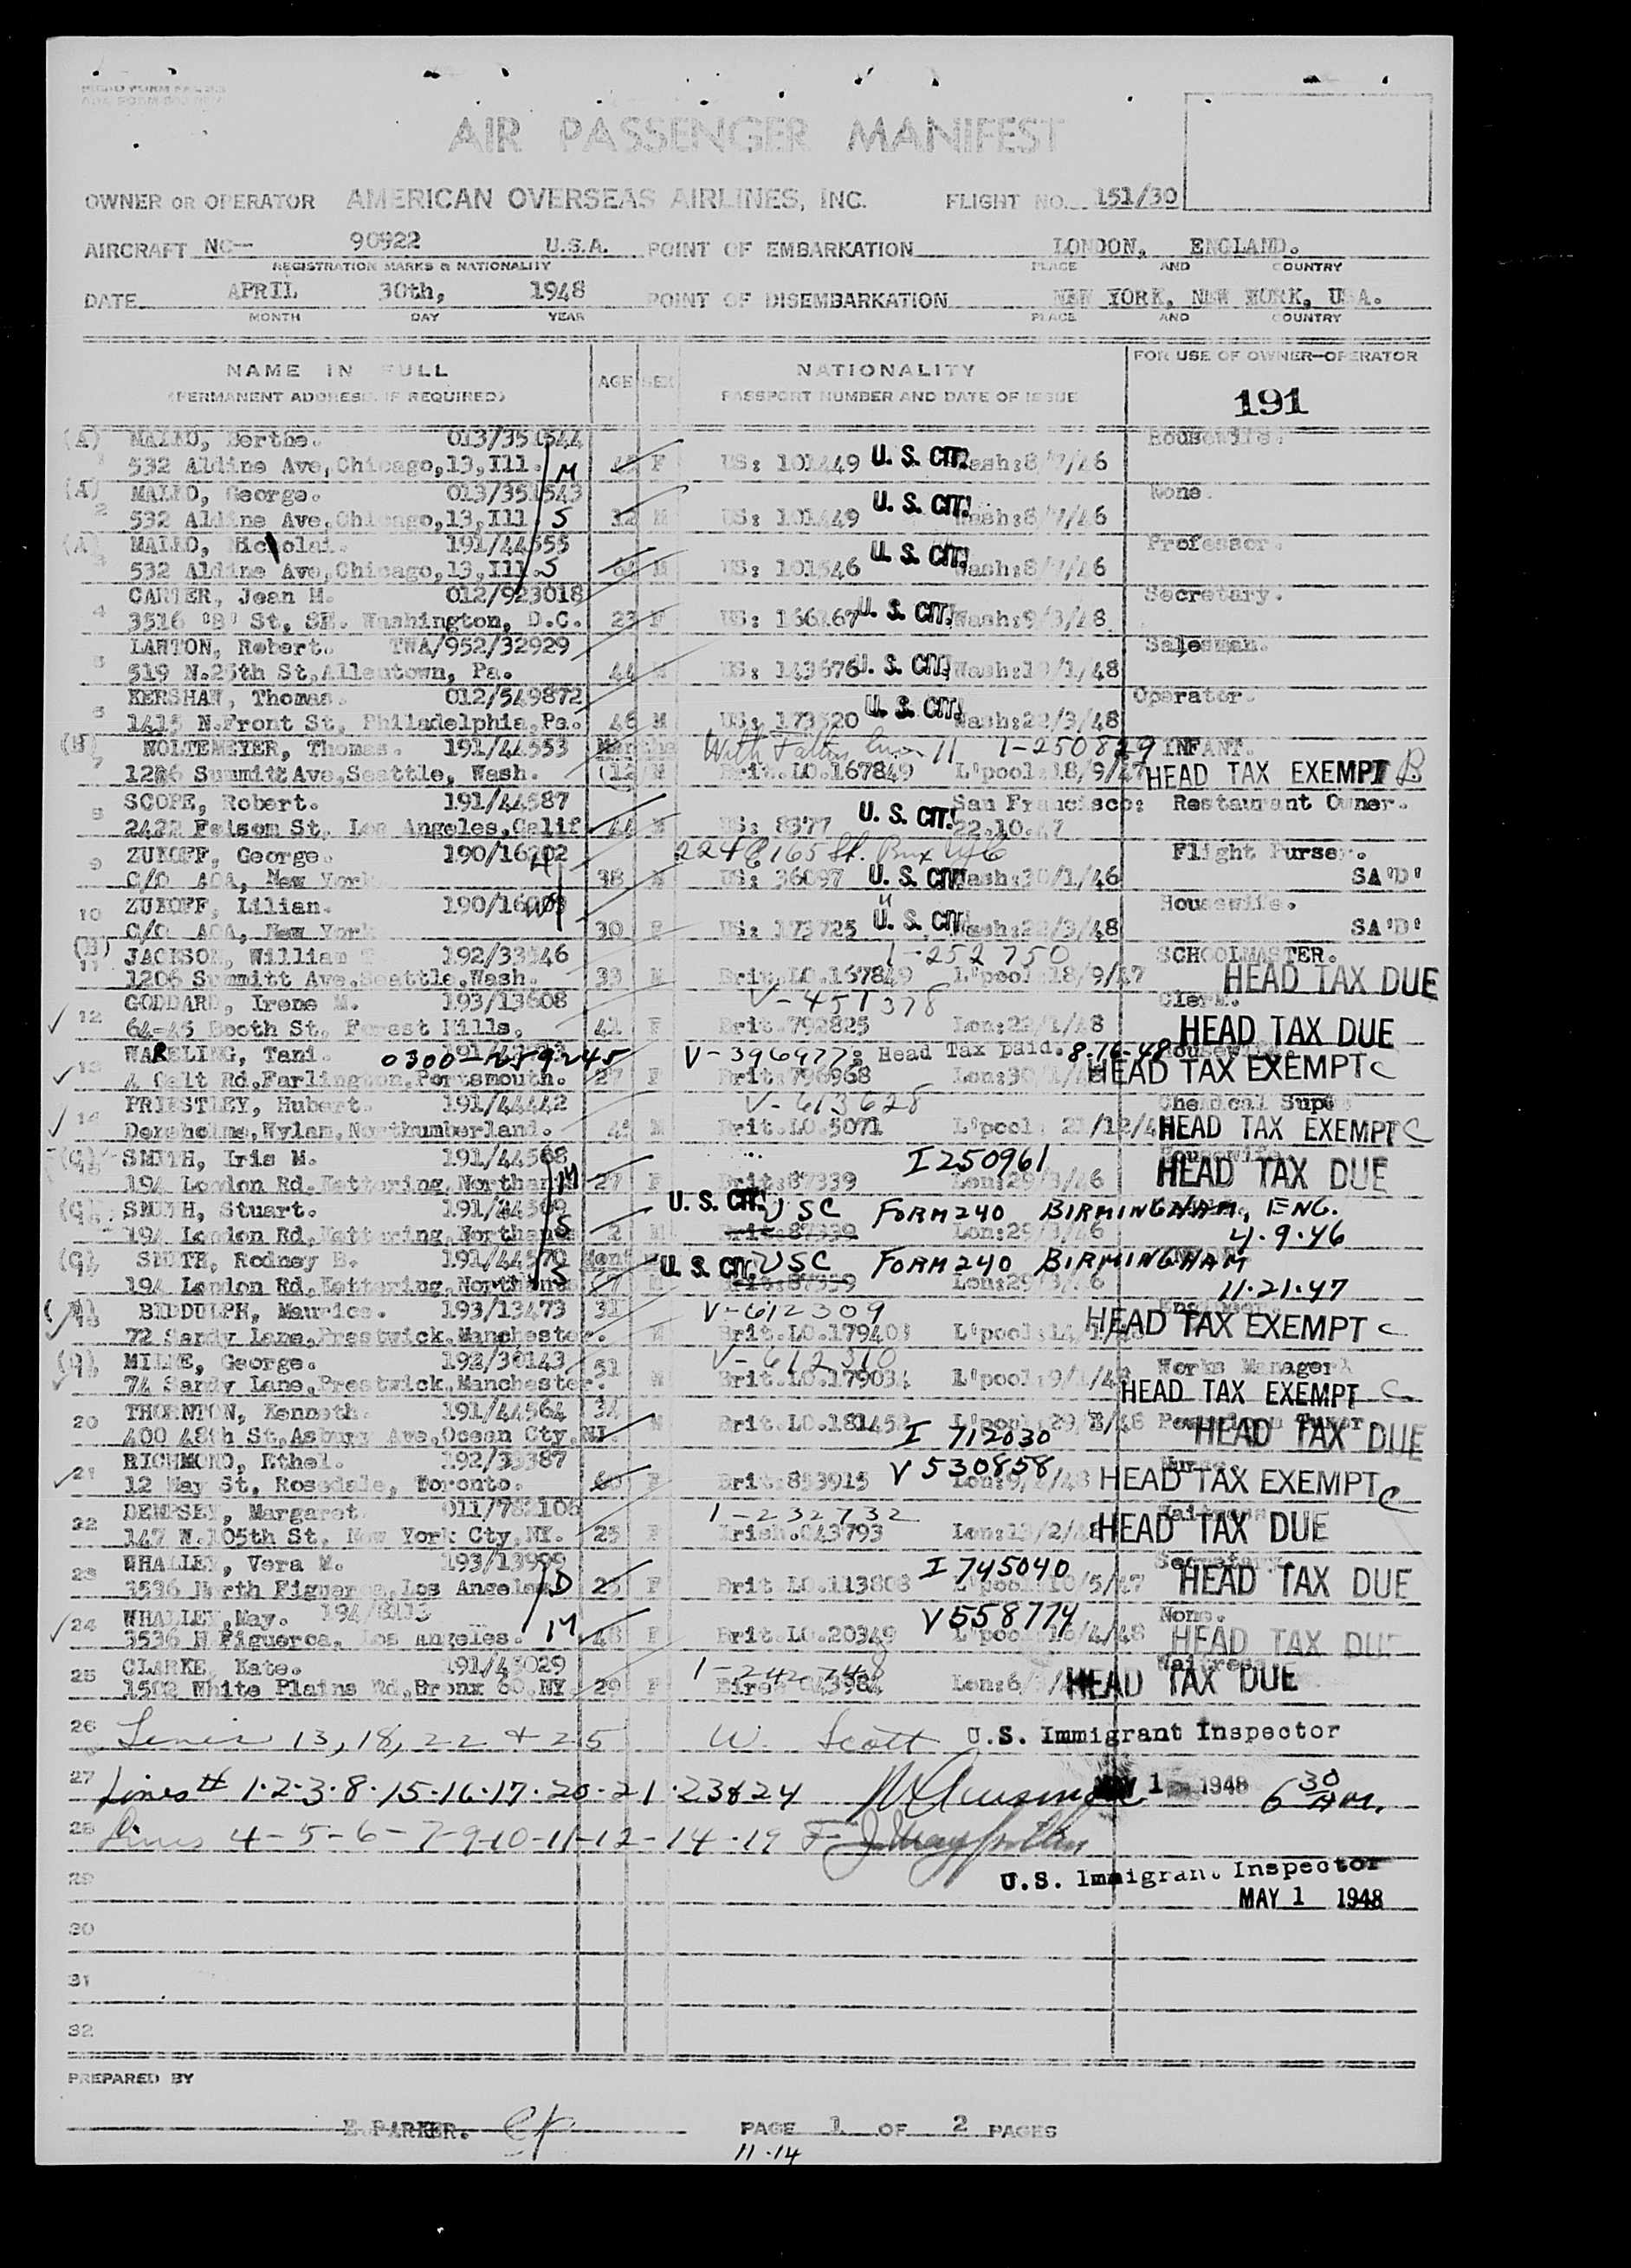 AIR PASSENGER MANIFEST
OWNER OR OPERATOR AMERICAN OVERSEAS AIRLINES, INC. FLIGHT NO. 151/30
AIRCRAFT NC— 90922 U.S.A. POINT OF EMBARKATION LONDON, ENGLAND.
REGISTRATION MARKS & NATIONALITY PLACE AND COUNTRY
DATE APRIL 30th, 1948 POINT OF DISEMBARKATION NEW YORK, NEW YORK, USA.
MONTH DAY YEAR PLACE AND COUNTRY
NAME IN FULL AGE SEX NATIONALITY FOR USE OF OWNER—OPERATOR
(PERMANENT ADDRESS IF REQUIRED) PASSPORT NUMBER AND DATE OF ISSUE 191
(A) Berthe. 013/351544 Housewife.
532 Aldine Ave, Chicago,13,Ill. M F US: 101449 U. S. CIT. Wash:8/7/46
(A) George. 013/351543 None.
2 532 Aldine Ave,Chicago,13,Ill. S 32 M US: 101449 U. S. CIT. Wash:8/7/46
(A) Nicholai. 191/44555 Professor.
532 Aldine Ave,Chicago,13,Ill. S M US: 101546 U. S. CIT. Wash:8/7/46
CARTER, Jean M. 012/923018 Secretary.
4 3516 'B' St, SE. Washington, D.C. 23 F US: 166267 U. S. CIT. Wash:9/3/48
LAWTON, Robert. TWA/952/32929 Salesman.
5 519 N.25th St,Allentown, Pa. 44 M US: 143676 U. S. CIT. Wash:19/1/48
KERSHAW, Thomas. 012/549872 Operator.
1415 N.Front St, Philadelphia,Pa. 46 M US: 173520 U. S. CIT. Wash:22/3/48
(B) NOLTEMEYER, Thomas. 191/44553 Months With Father Line 11 1-250829 INFANT.
7 1206 Summitt Ave,Seattle, Wash. (12 M Brit.LO.167849 L'pool:18/9/47 HEAD TAX EXEMPT B
SCOPE, Robert. 191/44587 San Francisco: Restaurant Owner.
8 2422 Folsom St, Los Angeles,Calif 44 M US: 8377 U. S. CIT. 22.10.47
9 ZUKOFF, George. 190/16202 H 2248 165 St. Flight Purser.
C/O AOA, New York 38 M US: 36097 U. S. CIT. Wash:30/1/46 SA'D'
10 ZUKOFF, Lilian. 190/16203 Housewife.
C/O AOA, New York 30 F US: 173725 U. S. CIT. Wash:22/3/48 SA'D'
(B) 11 JACKSON, William T 192/33146 1-252750 SCHOOLMASTER.
1206 Summitt Ave,Seattle,Wash. 33 M Brit.LO.167849 L'pool:18/9/47 HEAD TAX DUE
GODDARD, Irene M. 193/13608 V-457378 Clerk.
12 64-45 Booth St, Forest Hills, 41 F Brit.792825 Lon:22/1/48 HEAD TAX DUE
WARELING, Tani. 0300-259245 V-396977; Head Tax paid. 8-16-48 Housewife.
13 4 Galt Rd,Farlington,Portsmouth. 27 F Brit:796968 HEAD TAX EXEMPT C
PRIESTLEY, Hubert. 191/44442 V-613628 Chemical Supt
14 Wylam,Northumberland. M Brit.LO.5071 L'pool: HEAD TAX EXEMPT C
(G) SMITH, Iris M. 191/44568 I 250961 Housewife.
194 London Rd,Kettering,Northan M 27 F Brit:87339 Lon:29/3/46 HEAD TAX DUE
(G) SMITH, Stuart. 191/44569 U. S. CIT. USC FORM 240 BIRMINGHAM, ENG.
194 London Rd,Kettering,Northan S 2 M Brit:87339 Lon:29/3/46 4.9.46
(G) SMITH, Rodney B. 191/44570 U. S. CIT. USC FORM 240 BIRMINGHAM
194 London Rd,Kettering,Northan S Brit:87339 Lon:29/3/46 11.21.47
BIDDULPH, Maurice. 193/13473 31 V-612309 Engineer.
72 Sandy Lane,Prestwick,Manchester. M L'pool: HEAD TAX EXEMPT C
MILNE, George. 192/30143 51 V-612310 Works Manager
74 Sandy Lane,Prestwick,Manchester. M Brit.LO.179034 L'pool:9/1/48 HEAD TAX EXEMPT C
20 THORNTON, Kenneth. 191/44564 34 M Brit.LO.
400 48th St,Asbury Ave,Ocean Cty,NJ. I 712030 HEAD TAX DUE
21 RICHMOND, Ethel. V 530858 Nurse.
12 May St, Rosedale, Toronto. 60 F Brit:853915 HEAD TAX EXEMPT C
DEMPSEY, Margaret. 011/782106 1-232732 Waitress
22 147 W.105th St, New York Cty,NY. 25 F Irish.043793 Lon:13/2/48 HEAD TAX DUE
WHALLEY, Vera M. 193/13999 I 745040 Secretary.
23 3536 North Figueroa,Los Angeles D 25 F Brit LO.113808 L'pool:10/5/47 HEAD TAX DUE
24 WHALLEY,May. V 558774 None.
3536 N Figueroa, Los Angeles. M 48 F Brit.LO.20349 HEAD TAX DUE
25 CLARKE, Kate. 191/45029 1-242748 Waitress
1502 White Plains Rd,Bronx 60,NY. 29 F Eire 043984 HEAD TAX DUE
26 Lines 13, 18, 22 & 25 W. Scott U.S. Immigrant Inspector
27 Lines # 1·2·3·8·15·16·17·20·21·23&24 MAY 1 1948 6 30 AM.
28 Lines 4-5-6-7-9-10-11-12-14-19
29 U.S. Immigrant Inspector
MAY 1 1948
30
31
32
PREPARED BY
E.PARKER. PAGE 1 OF 2 PAGES
11-14